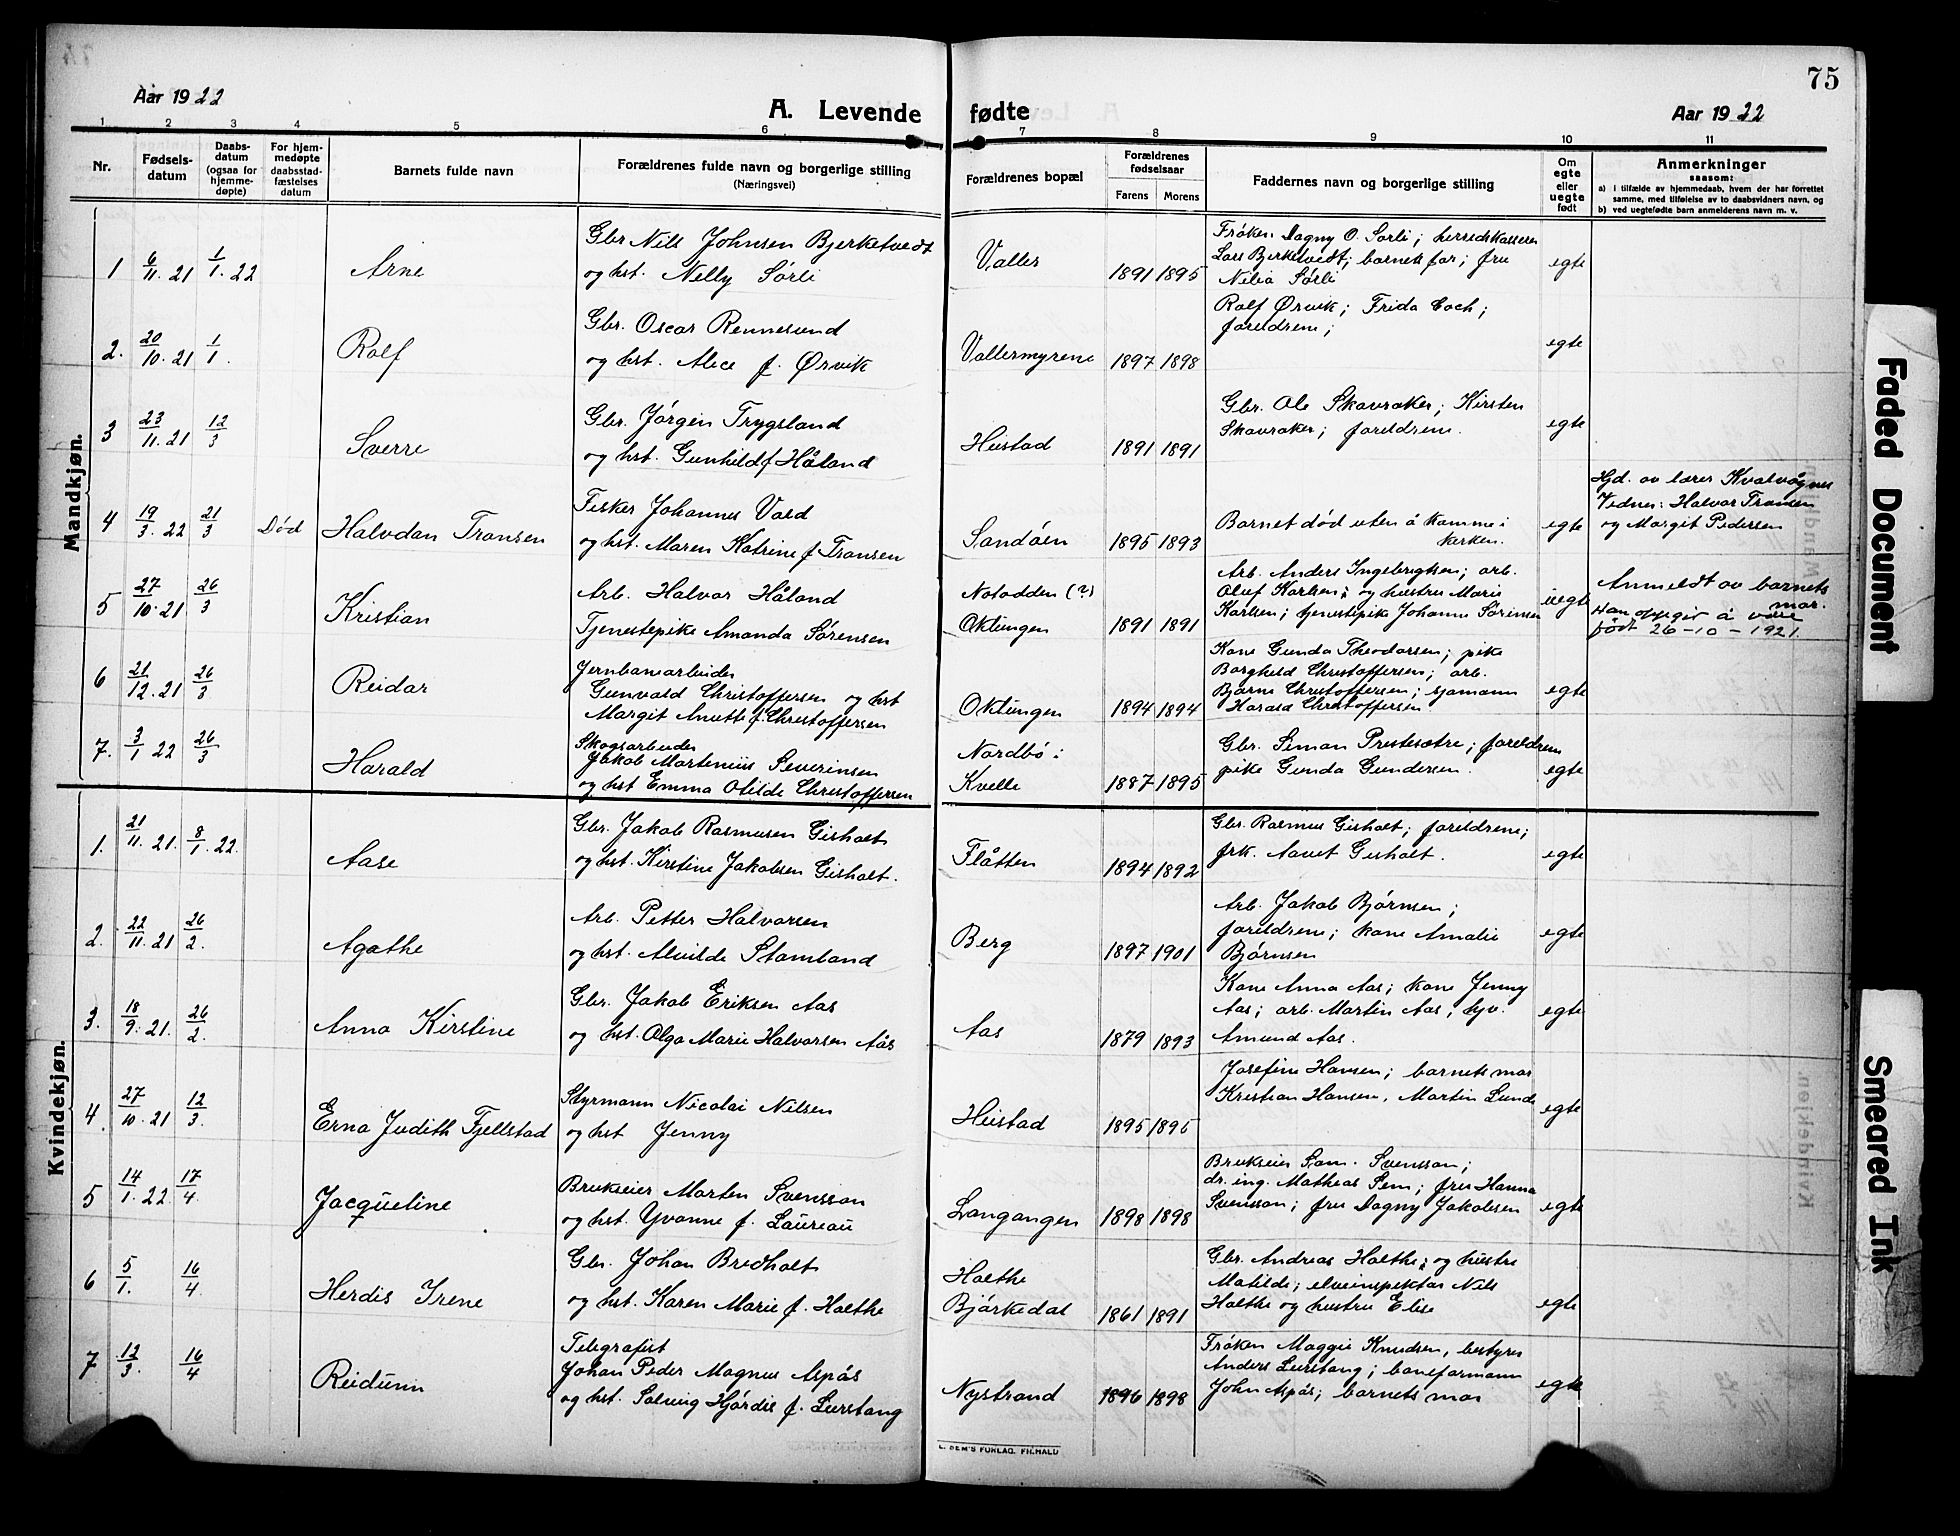 75
Aar 1922
A. Levende fødte
Aar 1922
1 2 3 4 5 6 7 8 9 10 11
Nr.
Fødsels-
datum
Daabs-
datum
(ogsaa for
hjemme-
døpte)
For hjem-
medøpte
daabsstad-
fæstelses
datum
Barnets fulde navn
Forældrenes fulde navn og borgerlige stilling
(Næringsvei)
Forældrenes bopæl
Forældrenes
fødselsaar
Farens Morens
Faddernes navn og borgerlige stilling
Om
egte
eller
uegte
født
Anmerkninger
saasom:
a) i tilfælde av hjemmedaab, hvem der har forrettet
samme, med tilføielse av to daabsvidners navn, og
b) ved uegtefødte barn anmelderens navn m. v.
Mandkjøn.
1 6/11. 21 1/1. 22 Arne
Gbr Nils Johnsen Bjerketvedt
og hst. Nelly Sørli
Valler 1891 1895
Frøken Dagny O. Sørli; herredskasserer
Lars Bjerketvedt; barnets far; fru
Nilia Sørli
egte
2. 20/10. 21 1/1. Rolf
Gbr. Oscar Rennesund
og hst. Alice f. Ørvik
Vallermyrene 1897 1898
Rolf Ørvik; Frida Coch;
foreldrene;
egte
3 23/11. 21 12/3 Sverre
Gbr. Jørgen Trygsland
og hst. Gunhild f Håland
Heistad 1891 1891
Gbr. Ole Skavraker; Kirsten
Skavraker; foreldrene.
egte
4 19/3. 22 21/3 Død Halvdan Transen
Fisker Johannes Vold
og hst. Maren Katrine f. Transen
Sandøen 1895 1893
Barnet død uten å komme i
kirken.
egte
Hjd. av lærer Kvalvågnes
Vidner: Halvor Transen
og Margit Pedersen
5 27/10. 21 26/3 Kristian
Arb. Halvor Håland
Tjenestepike Amanda Sørensen
Notodden (?)
Oklungen 1891 1891
Arb. Anders Ingebregtsen; arb.
Oluf Karlsen; og hustru Marie
Karlsen; tjenestepike Johanne Sørensen
uegte
Anmeldt av barnets
mor.
Han oppgir å være
født 26-10-1921
6 21/12. 21 26/3 Reidar
Jernbanearbeider
Gunvald Christoffersen og hst
Margit Anette f. Christoffersen
Oklungen 1894 1894
Kone Gunda Theodorsen; pike
Borghild Christoffersen; arb.
Bjarne Christoffersen; sjømann
Harald Christoffersen
egte
7. 3/1 22 26/3 Harald
Skogsarbeider
Jakob Martenius Severinsen
og hst Emma Otilde Christoffersen
Nordbø i
Kvelle 1887 1895
Gbr. Simon Prestesætre; foreldrene
pike Gunda Gundersen.
egte
Kvindekjøn.
1. 21/11. 21. 8/1. 22. Aase
Gbr. Jakob Rasmusen Gisholt
og hst. Kirstine Jakobsen Gisholt.
Flåtten 1894 1892
Gbr. Rasmus Gisholt; foreldrene;
frk. Gisholt.
egte
2. 22/11. 21 26/2. Agathe
Arb. Petter Halvorsen
og hst. Alvilde Stamland
Berg 1897 1901
Arb. Jakob Bjørnsen;
foreldrene; kone Amalie
Bjørnsen
egte
3. 18/9. 21. 26/2. Anna Kirstine
Gbr. Jakob Eriksen Aas
og hst. Olga Marie Halvorsen Aas
Aas 1879 1893
Kone Anna Aas; kone Jenny
Aas; arb. Martin Aas,
Amund Aas.
egte
4. 27/10. 21 12/3. Erna Judith Fjellstad
Styrmann Nicolai Nilsen
og hst Jenny
Heistad 1895 1895
Josefine Hansen; barnets mor
Kristian Hansen, Martin Lunde
egte
5 14/1. 22. 17/4. Jacqueline
Brukseier Morten Svensson
og hst. Yvonne f. Laureau
Langangen 1898 1898
Brukseier Sam. Svensson;
dr. ing. Mathias Sem; fru Hanna
Svensson; fru Dagny Jakobsen
egte
6 5/1. 16/4. Herdis Irene
Gbr. Johan Bredholt
og hst. Karen Marie f. Holthe
Holthe
Bjørkedal 1861 1891
Gbr. Andreas Holthe; og hustru
Matilde; elveinspektør Nils
Holthe og hustru Elise
egte
7 12/3. 16/4 Reidunn
Telegrafist
Johan Peder Magnus Aspås
og hst. Solveig Hjørdis f. Lurstang
Nystrand 1896 1898
Frøken Maggie Knudsen, bestyrer
Anders Lurstang; baneformann
John Aspås; barnets mor
egte
E. SEM'S FORLAG, FR.HALD
Faded Document
Smeared Ink